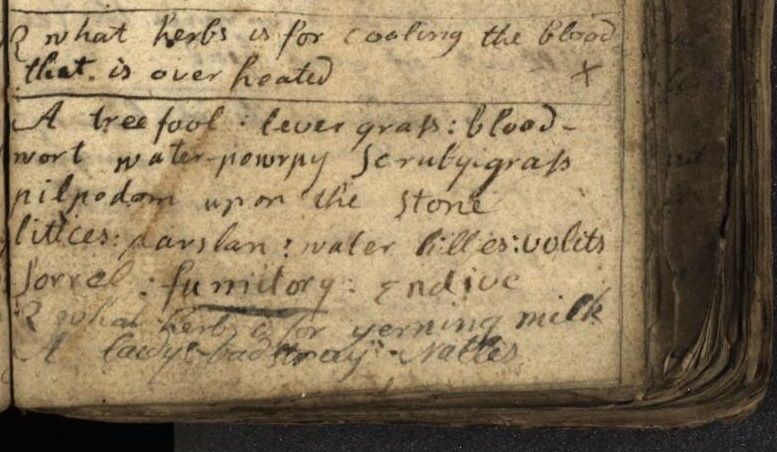 Q what herbs is for cooling the blood
that is over heated X
A tree fool : lever grass : blood-
wort water-powrpy Scruby-grass
pilpodom upon the Stone
littices : parslan : water lillies : volits
Sorrel : fumitory : Endive
Q what herbs is for yerning milk
A ladys-badstray Nattles